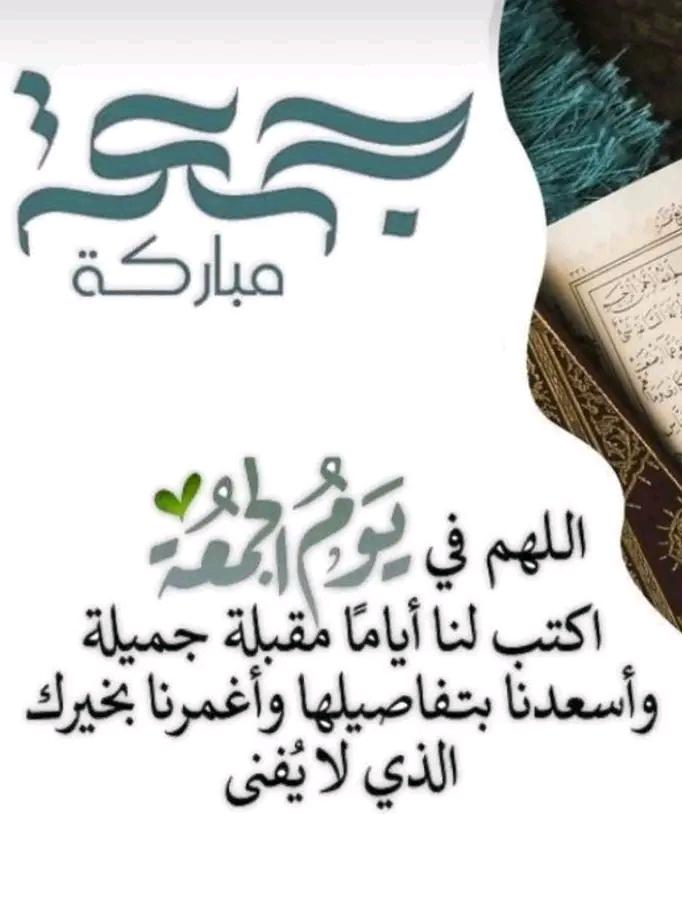 جمعة
مباركة
اللهم في يَومُ الجُمُعة
اكتب لنا أيامًا مقبلة جميلة
وأسعدنا بتفاصيلها وأغمرنا بخيرك
الذي لا يُفنى